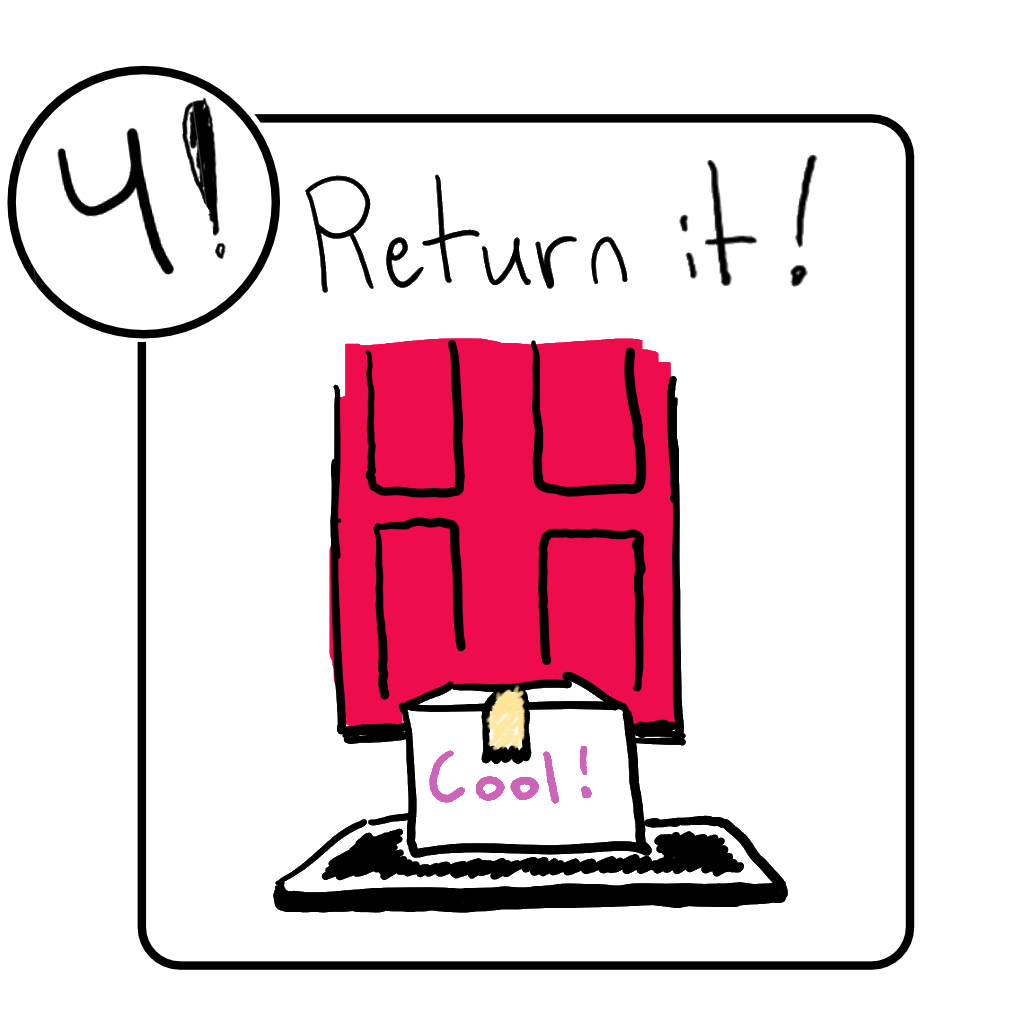 4!
Return it!
Cool!